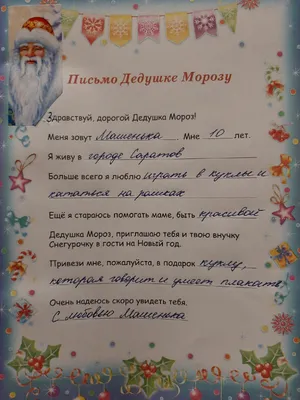 Письмо Дедушке Морозу
Здравствуй, дорогой Дедушка Мороз!
Меня зовут Машенька. Мне 10 лет.
Я живу в городе Саратов
Больше всего я люблю играть в куклы и
кататься на роликах
Ещё я стараюсь помогать маме, быть красивой
Дедушка Мороз, приглашаю тебя и твою внучку
Снегурочку в гости на Новый год.
Привези мне, пожалуйста, в подарок куклу,
которая говорит и умеет плакать.
Очень надеюсь скоро увидеть тебя.
С любовью Машенька